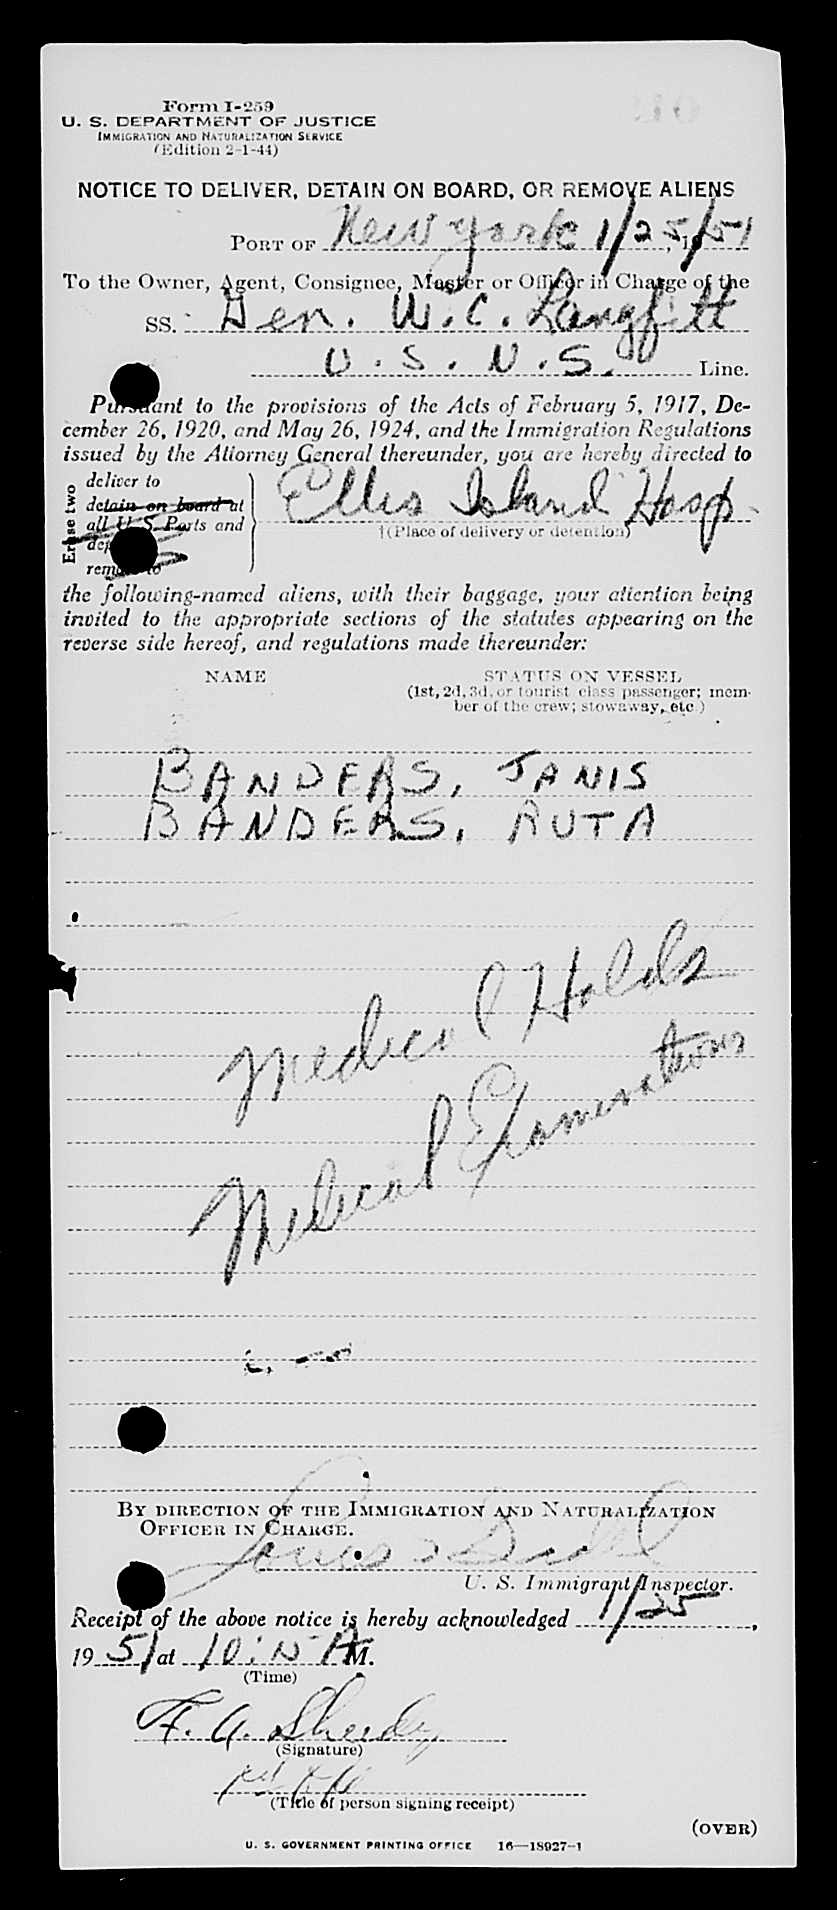 Form I-259
U. S. DEPARTMENT OF JUSTICE
IMMIGRATION AND NATURALIZATION SERVICE
(Edition 2-1-44)
NOTICE TO DELIVER, DETAIN ON BOARD, OR REMOVE ALIENS
PORT OF New York 1/25, 19/51
To the Owner, Agent, Consignee, Master or Officer in Charge of the
SS. Gen. W. C. Langfitt
U. S. N. S. Line.
Pursuant to the provisions of the Acts of February 5, 1917, De-
cember 26, 1920, and May 26, 1924, and the Immigration Regulations
issued by the Attorney General thereunder, you are hereby directed to
Erase two
deliver to
detain on board at
all U S. Ports and
remove to
Ellis Island Hosp.
†(Place of delivery or detention)
the following-named aliens, with their baggage, your attention being
invited to the appropriate sections of the statutes appearing on the
reverse side hereof, and regulations made thereunder:
NAME
STATUS ON VESSEL
(1st, 2d, 3d, or tourist class passenger; mem-
ber of the crew; stowaway, etc.)
BANDERS, JANIS
BANDERS, RUTA
Medical Holds
Medical Examinations
BY DIRECTION OF THE IMMIGRATION AND NATURALIZATION
OFFICER IN CHARGE.
Louis
U. S. Immigrant Inspector.
Receipt of the above notice is hereby acknowledged 1/25,
1951 at 10:15 AM.
(Time)
F. A. Sheedy
(Signature)
(Title of person signing receipt)
(OVER)
U. S. GOVERNMENT PRINTING OFFICE 16—18927-1